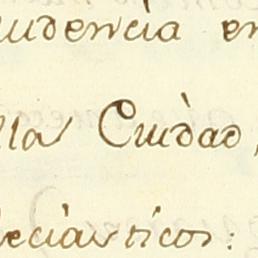 udencia en
lla Ciudad,
leciasticos: